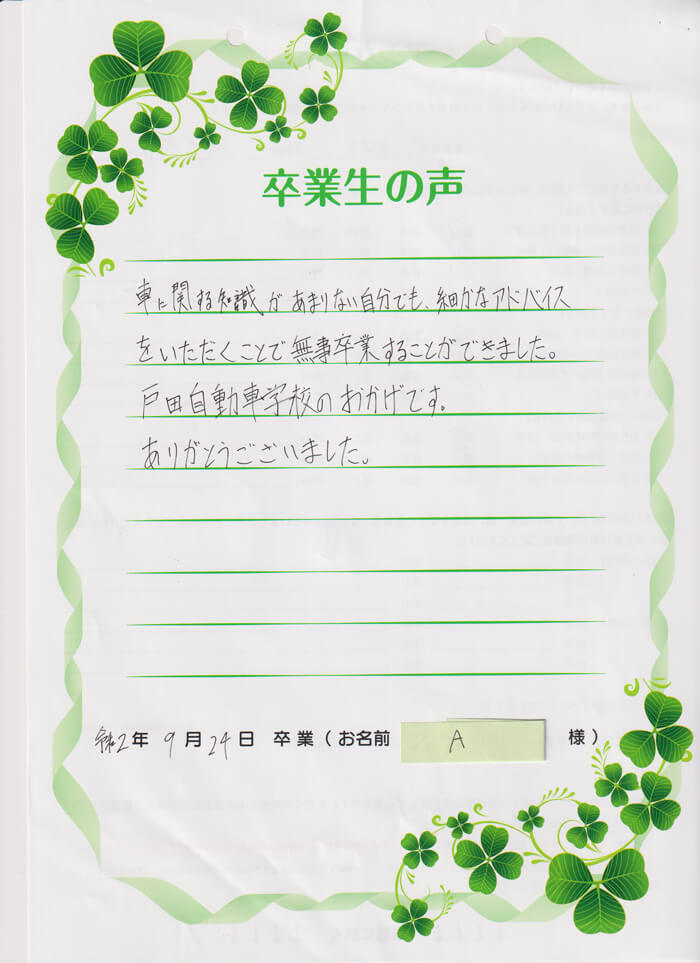 卒業生の声
車に関する知識があまりない自分でも、細かなアドバイス
をいただくことで無事卒業することができました。
戸田自動車学校のおかげです。
ありがとうございました。
令和2年 9月24日 卒業(お名前 A 様)